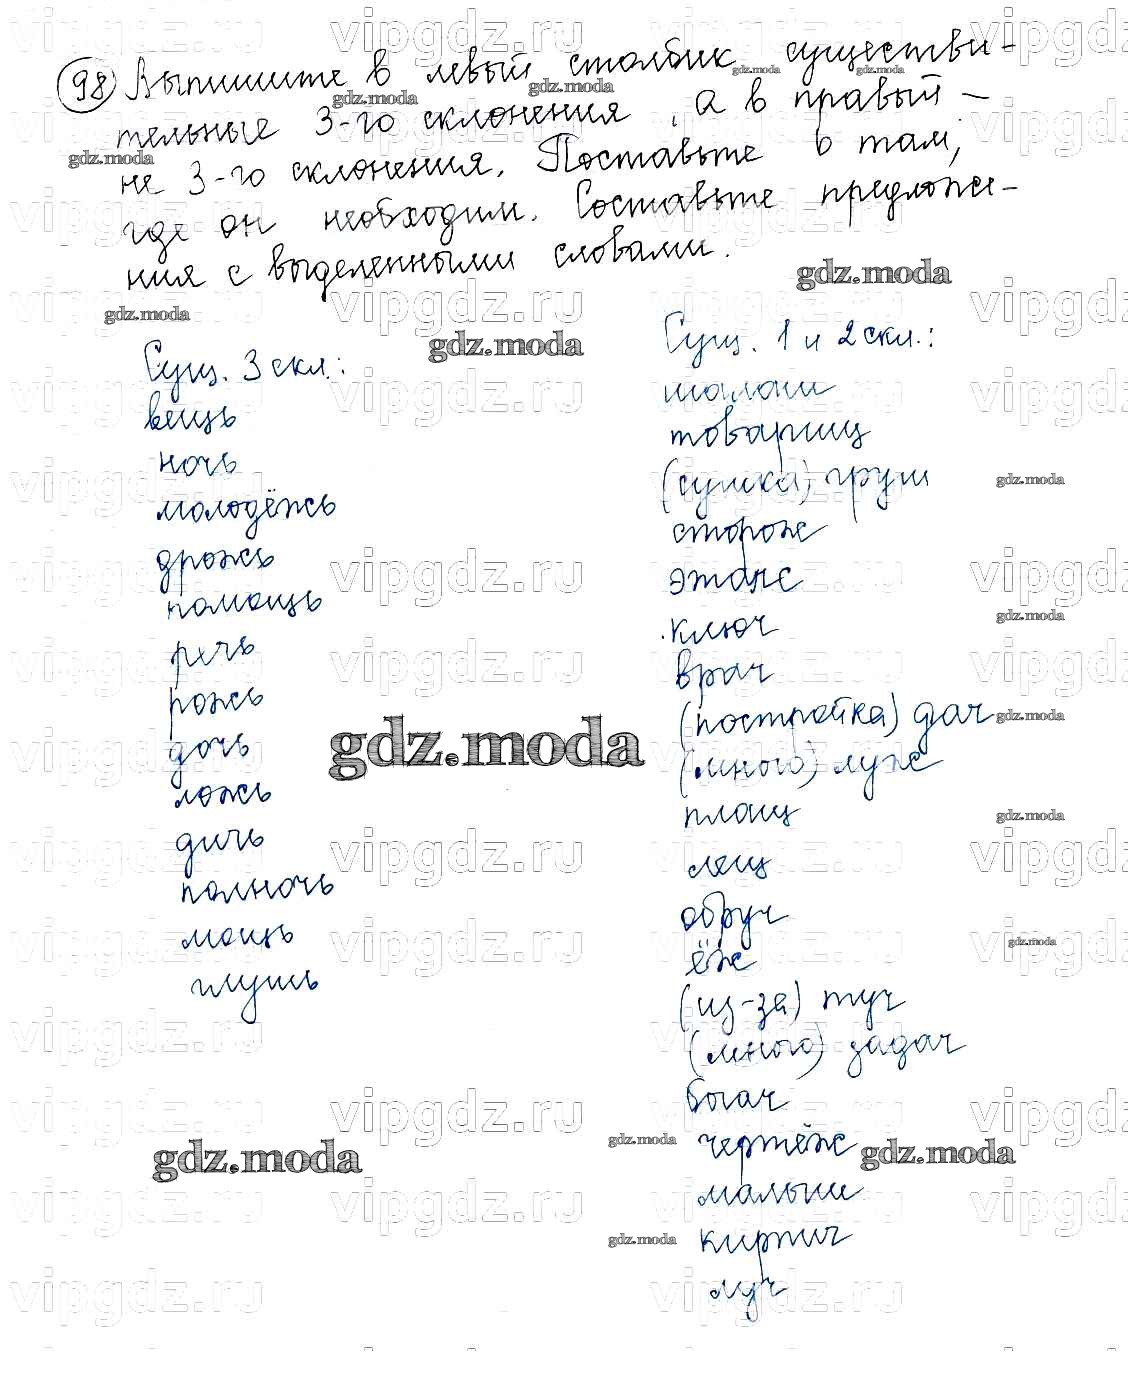 98 Выпишите в левый столбик существи-
тельные 3-го склонения, а в правый -
не 3-го склонения. Поставьте ь там,
где он необходим. Составьте предложе-
ния с выделенными словами.
Сущ. 3 скл.:
вещь
ночь
молодёжь
дрожь
помощь
речь
рожь
дочь
ложь
дичь
полночь
мощь
глушь
Сущ. 1 и 2 скл.:
шалаш
товарищ
(сушка) груш
сторож
этаж
ключ
врач
(постройка) дач
(много) луж
плащ
лещ
обруч
ёж
(из-за) туч
(много) задач
богач
чертёж
малыш
кирпич
луч
gdz.moda
vipgdz.ru